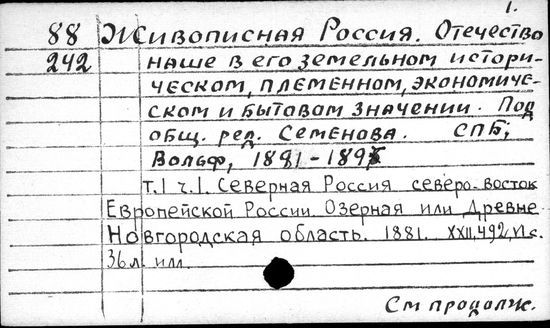 1.
88 Живописная Россия. Отечество
242 наше в его земельном истори-
ческом, племенном, экономиче-
ском и бытовом значении. Под
общ. ред. Семенова. СПБ,
Вольф, 1881-189
т.1 ч.1. Северная Россия северо-восток
Европейской России. Озерная или Древне
Новгородская область. 1881. XXII, 492, II с.
36 л. илл.
См продолж.